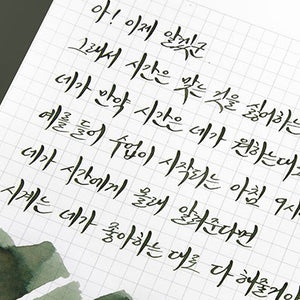 아! 이제 알겠군
그래서 시간은 맞는 것을 싫어하는
네가 만약 시간은 네가 원하는대로
예를 들어 수업이 시작되는 아침 9시
네가 시간에게 몰래 알려준다면
시계는 네가 좋아하는 대로 다 해줄거야